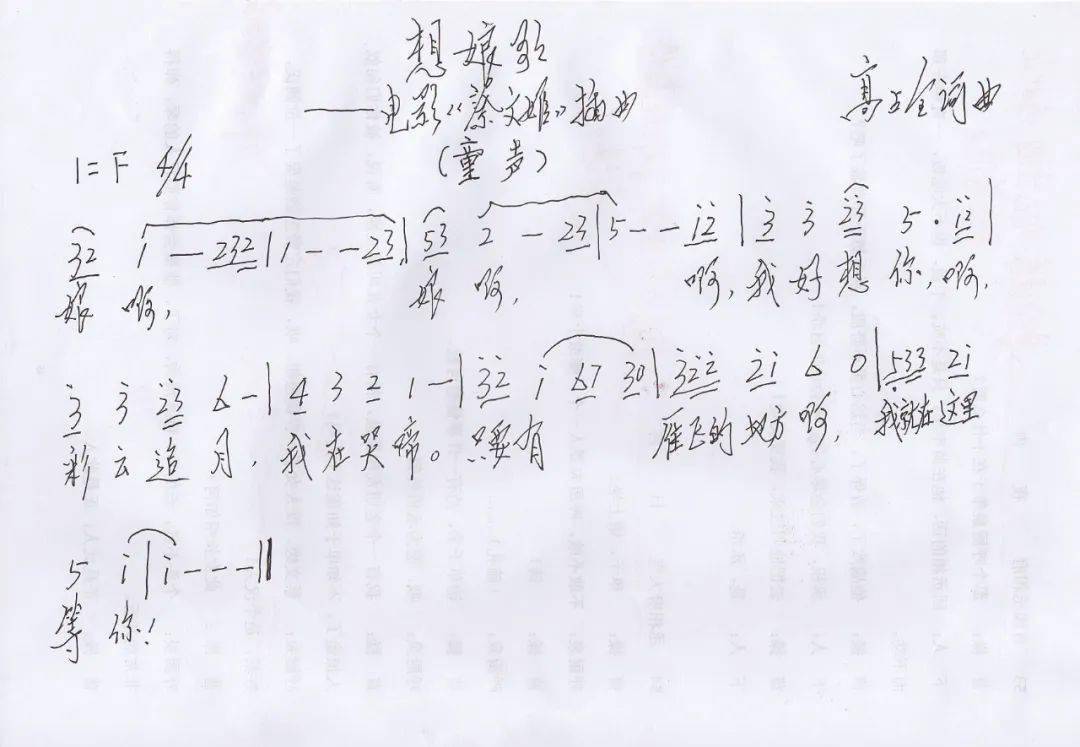 想娘歌
——电影《蔡文姬》插曲
高占全词曲
(童声)
1=F 4/4
32 1 — 232 | 1 - - 23 | 53 2 - 23 | 5 - - i2 | 3 3 23 5 · i2 |
娘 啊, 娘 啊, 啊, 我 好 想 你, 啊,
3 3 23 6 - | 4 3 2 1 - | 32 i 67 30 | 322 2i 6 0 | 533 2i
彩 云 追 月, 我 在 哭 啼。 只要有 雁飞的 地方 啊, 我就在 这里
5 i | i - - - ||
等 你!